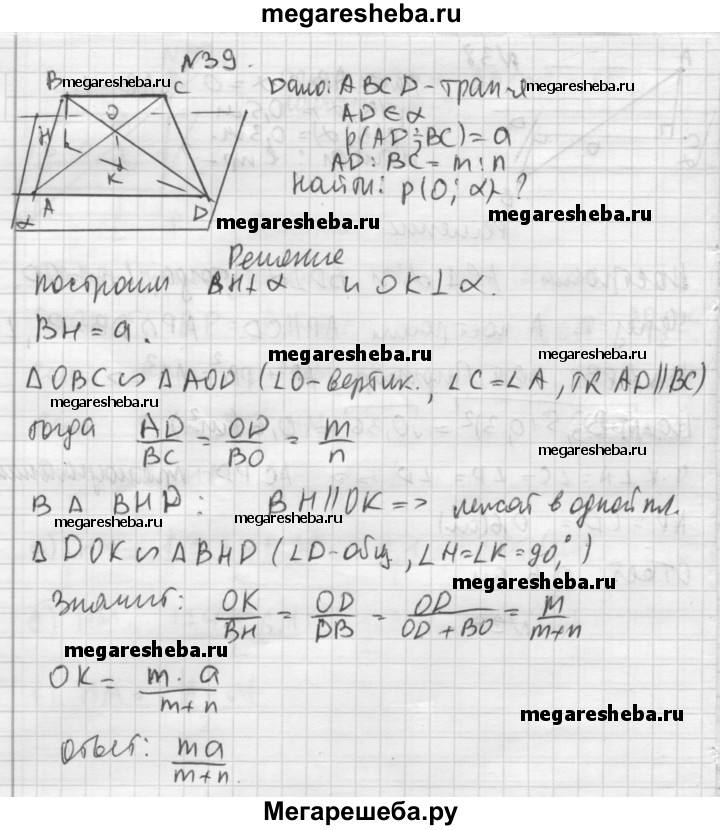 megaresheba.ru
№39.
B C
megaresheba.ru
O
H
K
A D
α
Дано: ABCD - трап-я
megaresheba.ru
AD ∈ α
ρ(AD; BC) = a
megaresheba.ru
AD : BC = m : n
Найти: ρ(O; α) - ?
megaresheba.ru
megaresheba.ru
Решение
построим BH ⊥ α и OK ⊥ α.
BH = a.
megaresheba.ru
Δ OBC ∽ Δ AOD (∠O - вертик., ∠C = ∠A, т.к AD || BC)
megaresheba.ru
тогда AD/BC = OD/BO = m/n
megaresheba.ru
В Δ BHD: BH || OK => лежат в одной пл.
megaresheba.ru
megaresheba.ru
Δ DOK ∽ Δ BHD (∠D - общ, ∠H = ∠K = 90°,)
megaresheba.ru
Значит: OK/BH = OD/DB = OD/(OD + BO) = m/(m+n)
megaresheba.ru
OK = m · a/(m+n)
megaresheba.ru
ответ: ma/(m+n).
megaresheba.ru
Мегарешеба.ру